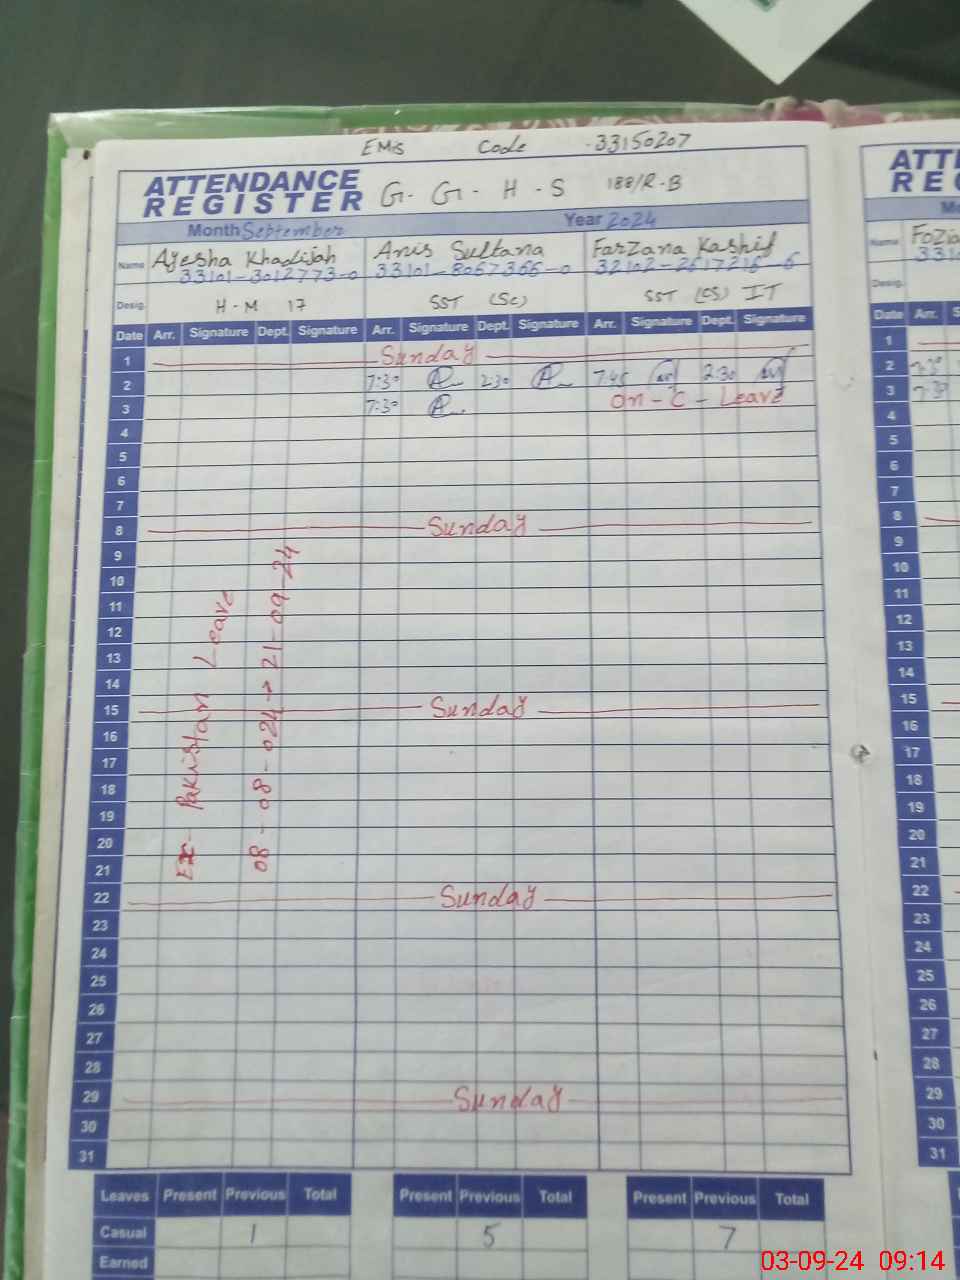 EMIS Code - 33150207
ATTENDANCE REGISTER G- G- H - S 188/R-B
Month September Year 2024
Name Ayesha Khadijah Anis Sultana Farzana Kashif
33101-3012773-0 33101-8067366-0
Desig. H-M 17 SST (Sc) SST (CS) IT
Date Arr. Signature Dept. Signature Arr. Signature Dept. Signature Arr. Signature Dept. Signature
1 Sunday
2 7:30 2:30 7:45 2:30
3 7:30 On - C - Leave
4
5
6
7
8 Sunday
9
10
11
12
13
14
15 Sunday
16
17
18
19
20
21
22 Sunday
23
24
25
26
27
28
29 Sunday
30
31
Ex- Pakistan Leave
08 - 08 - 024 → 21 - 09 - 24
Leaves Present Previous Total Present Previous Total Present Previous Total
Casual 1 5 7
Earned
ATT
RE
Name
3310
Desig.
Date Arr. S
1
2 7:30
3 7:30
4
5
6
7
8
9
10
11
12
13
14
15
16
17
18
19
20
21
22
23
24
25
26
27
28
29
30
31
03-09-24 09:14